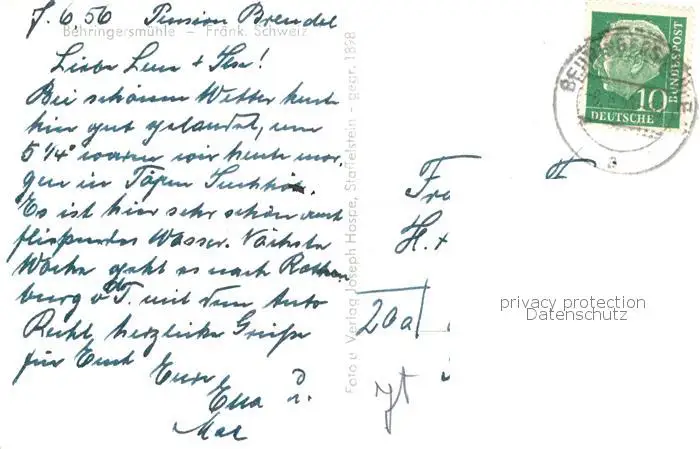 7.6.56 Pension Brendel
Behringersmühle – Fränk. Schweiz
Liebe Lene + Ilse!
Bei schönem Wetter heute
hier gut gelandet, um
5 1/4° waren wir heute mor-
gen in Töpen
Es ist hier sehr schön auch
fließendes Wasser. Nächste
Woche geht es nach Rothen
burg o/d T. mit dem Auto
Recht herzliche Grüße
für Euch
Eure
Ella u.
Max
Foto u Verlag Joseph Haspe, Staffelstein – gegr. 1898
Fr
H. +
20a
BEHRINGERSMÜHLE
a
10
DEUTSCHE
BUNDESPOST
privacy protection
Datenschutz